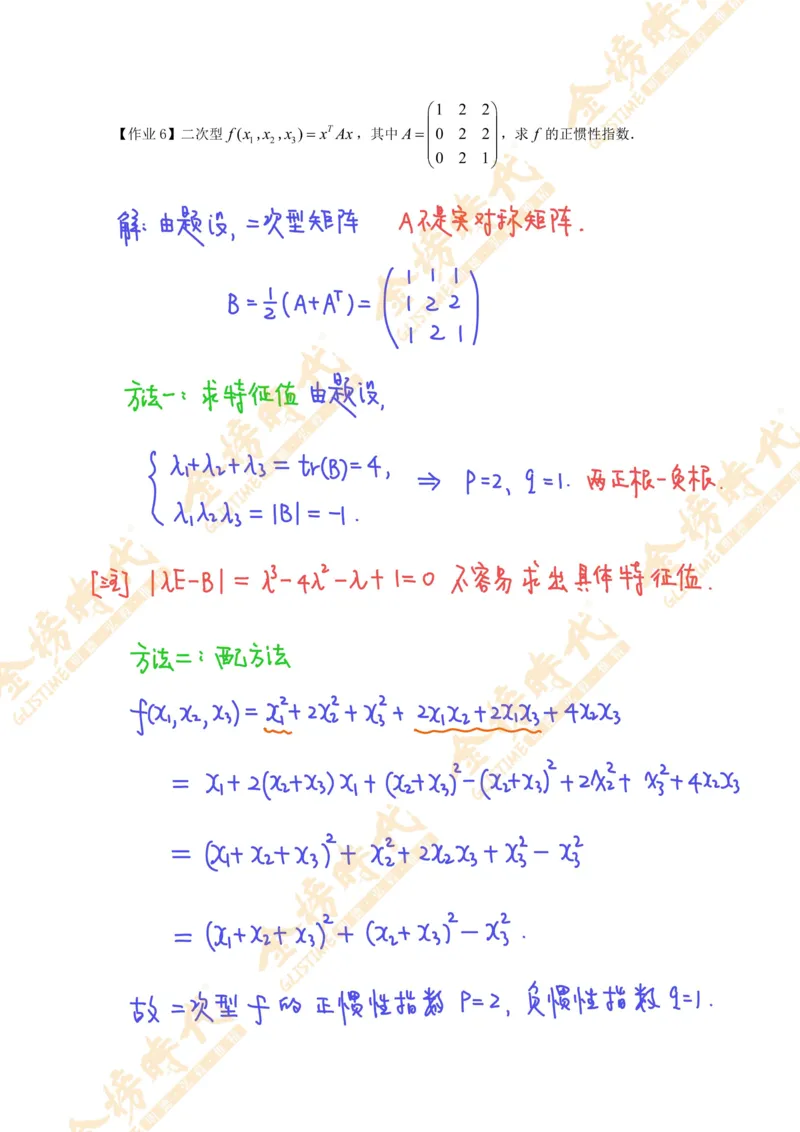 【作业6】二次型 f(x₁,x₂,x₃)=xᵀAx，其中A=(1 2 2; 0 2 2; 0 2 1)，求 f 的正惯性指数.
解: 由题设, 二次型矩阵 A不是实对称矩阵.
B=½(A+Aᵀ)=(1 1 1; 1 2 2; 1 2 1)
方法一: 求特征值 由题设,
{λ₁+λ₂+λ₃=tr(B)=4,
λ₁λ₂λ₃=|B|=-1. ⇒ P=2、q=1. 两正根一负根.
[注] |λE-B|=λ³-4λ²-λ+1=0 不容易求出具体特征值.
方法二: 配方法
f(x₁,x₂,x₃)=x₁²+2x₂²+x₃²+2x₁x₂+2x₁x₃+4x₂x₃
= x₁+2(x₂+x₃)x₁+(x₂+x₃)²-(x₂+x₃)²+2x₂²+x₃²+4x₂x₃
= (x₁+x₂+x₃)²+x₂²+2x₂x₃+x₃²-x₃²
= (x₁+x₂+x₃)²+(x₂+x₃)²-x₃².
故二次型 f 的正惯性指数 P=2, 负惯性指数 q=1.
金榜時代
GLISTIME